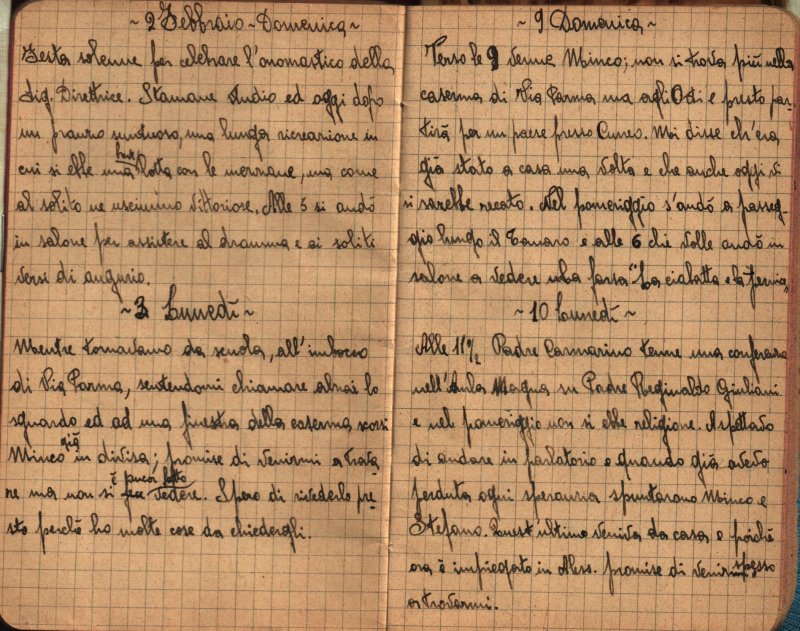 ~ 2 Febbraio ~ Domenica ~
Festa solenne per celebrare l'onomastico della
Sig. Direttrice. Stamane studio ed oggi dopo
un pranzo suntuoso, una lunga ricreazione in
cui si ebbe una lotta con le mezzane, ma come
al solito ne uscimmo vittoriose. Alle 5 si andò
in salone per assistere al dramma e ai soliti
versi di augurio.
~ 3 Lunedì ~
Mentre tornavamo da scuola, all'imbocco
di Via Parma, sentendomi chiamare alzai lo
sguardo ed ad una finestra della caserma scorsi
Minco già in divisa; promise di venirmi a trova-
re ma non si è ancor fatto vedere. Spero di rivederlo pre-
sto perchè ho molte cose da chiedergli.
~ 9 Domenica ~
Verso le 9 venne Minco; non si trova più nella
caserma di Via Parma ma agli Orti e presto par-
tirà per un paese presso Cuneo. Mi disse ch'era
già stato a casa una volta e che anche oggi vi
si sarebbe recato. Nel pomeriggio s'andò a passeg-
gio lungo il Tanaro e alle 6 chi volle andò in
salone a vedere una farsa "La ciabatta e la
~ 10 Lunedì ~
Alle 11 1/2 Padre Cammarino tenne una conferenza
nell'Aula Magna su Padre Reginaldo Giuliani
e nel pomeriggio non si ebbe religione. Aspettavo
di andare in parlatorio e quando già avevo
perduta ogni speranza spuntarono Minco e
Stefano. Quest'ultimo veniva da casa e poichè
ora è impiegato in Aless. promise di venirmi spesso
a trovarmi.